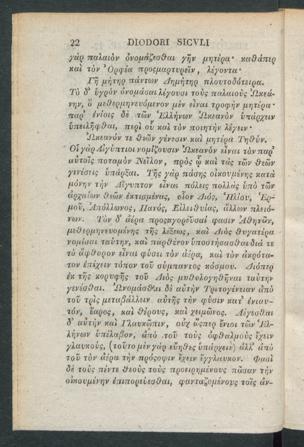 22 DIODORI SICVLI
γὰρ παλαιὸν ὀνομάζεσθαι γῆν μητέρα· καθάπερ
καὶ τὸν Ὀρφέα προςμαρτυρεῖν, λέγοντα·
Γῆ μήτηρ πάντων Δημήτηρ πλουτοδότειρα.
Τὸ δ' ὑγρὸν ὀνομάσαι λέγουσι τοὺς παλαιοὺς Ὠκεά-
νην, ὃ μεθερμηνευόμενον μὲν εἶναι τροφὴν μητέρα·
παρ' ἐνίοις δὲ τῶν Ἑλλήνων Ὠκεανὸν ὑπάρχειν
ὑπειλῆφθαι, περὶ οὗ καὶ τὸν ποιητὴν λέγειν·
Ὠκεανόν τε θεῶν γένεσιν καὶ μητέρα Τηθύν.
Οἱ γὰρ Αἰγύπτιοι νομίζουσιν Ὠκεανὸν εἶναι τὸν παρ'
αὐτοῖς ποταμὸν Νεῖλον, πρὸς ᾧ καὶ τὰς τῶν θεῶν
γενέσεις ὑπάρξαι. Τῆς γὰρ πάσης οἰκουμένης κατὰ
μόνην τὴν Αἴγυπτον εἶναι πόλεις πολλὰς ὑπὸ τῶν
ἀρχαίων θεῶν ἐκτισμένας, οἷον Διός, Ἡλίου, Ἑρ-
μοῦ, Ἀπόλλωνος, Πανός, Εἰλειθυίας, ἄλλων πλειό-
νων. Τὸν δ' ἀέρα προςαγορεῦσαί φασιν Ἀθηνᾶν,
μεθερμηνευομένης τῆς λέξεως, καὶ Διὸς θυγατέρα
νομίσαι ταύτην, καὶ παρθένον ὑποστήσασθαι διά τε
τὸ ἄφθορον εἶναι φύσει τὸν ἀέρα, καὶ τὸν ἀκρότα-
τον ἐπέχειν τόπον τοῦ σύμπαντος κόσμου. Διόπερ
ἐκ τῆς κορυφῆς τοῦ Διὸς μυθολογηθῆναι ταύτην
γενέσθαι. Ὠνομάσθαι δὲ αὐτὴν Τριτογένειαν ἀπὸ
τοῦ τρὶς μεταβάλλειν αὐτῆς τὴν φύσιν κατ' ἐνιαυ-
τόν, ἔαρος, καὶ θέρους, καὶ χειμῶνος. Λέγεσθαι
δ' αὐτὴν καὶ Γλαυκῶπιν, οὐχ ὥςπερ ἔνιοι τῶν Ἑλ-
λήνων ὑπέλαβον, ἀπὸ τοῦ τοὺς ὀφθαλμοὺς ἔχειν
γλαυκούς, (τοῦτο μὲν γὰρ εὔηθες ὑπάρχειν) ἀλλ' ἀπὸ
τοῦ τὸν ἀέρα τὴν πρόςοψιν ἔχειν ἔγγλαυκον. Φασὶ
δὲ τοὺς πέντε θεοὺς τοὺς προειρημένους πᾶσαν τὴν
οἰκουμένην ἐπιπορεύεσθαι, φανταζομένους τοῖς ἀν-